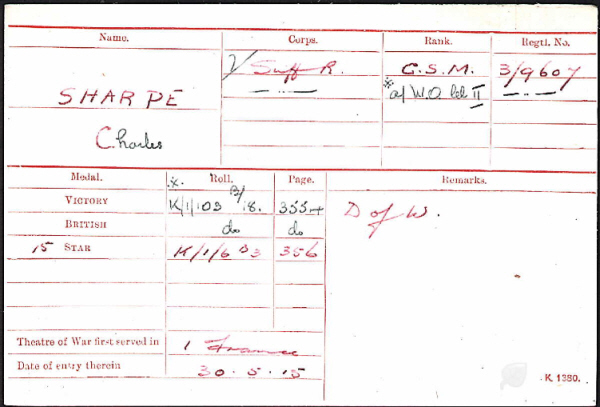 Name. Corps. Rank. Regtl. No.
SHARPE √ Suff R. C.S.M. 3/9607
Charles * a/W.O. Cl II
Medal. *. Roll. Page. Remarks.
VICTORY K/1/103 B/18. 355 D of W.
BRITISH do do
15 STAR K/1/6 B3 356
Theatre of War first served in 1 France
Date of entry therein 30.5.15
K. 1380.